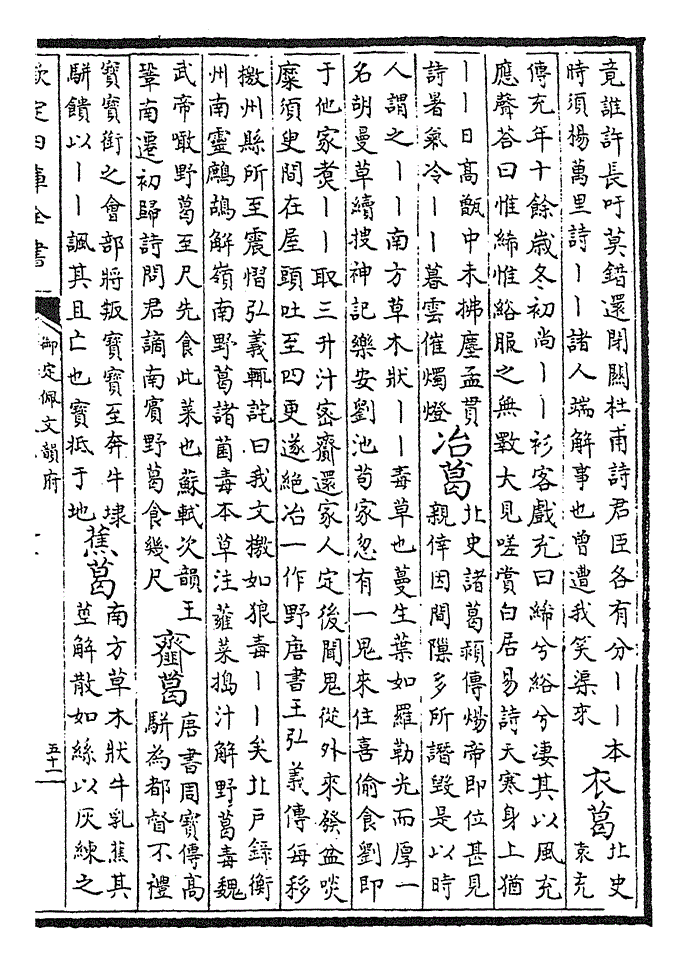 竟誰許長吁莫錯還閉關杜甫詩君臣各有分——本
時須揚萬里詩——諸人端解事也曾遭我笑渠來
衣葛
北史
袁充
傳充年十餘歲冬初尚——衫客戲充曰絺兮綌兮淒其以風充
應聲荅曰惟絺惟綌服之無斁大見嗟賞白居易詩天寒身上猶
——日高甑中未拂塵孟貫
詩暑氣冷——暮雲催燭燈
冶葛
北史諸葛潁傳煬帝即位甚見
親倖因間隟多所譖毀是以時
人謂之——南方草木狀——毒草也蔓生葉如羅勒光而厚一
名胡曼草續搜神記樂安劉池苟家忽有一鬼來住喜偷食劉即
于他家煑——取三升汁密齎還家人定後聞鬼從外來發盆啖
糜須臾間在屋頭吐至四更遂絕冶一作野唐書王弘義傳每移
檄州縣所至震慴弘義輒詫曰我文檄如狼毒——矣北戶錄衡
州南靈鷓鴣解嶺南野葛諸菌毒本草注蕹菜搗汁解野葛毒魏
武帝噉野葛至尺先食此菜也蘇軾次韻王
鞏南遷初歸詩問君謫南賓野葛食幾尺
虀葛
唐書周寶傳高
駢為都督不禮
寶寶銜之會部將叛寶寶至奔牛埭
駢饋以——諷其且亡也寶抵于地
蕉葛
南方草木狀牛乳蕉其
莖解散如絲以灰練之
欽定四庫全書
御定佩文韻府
五十一